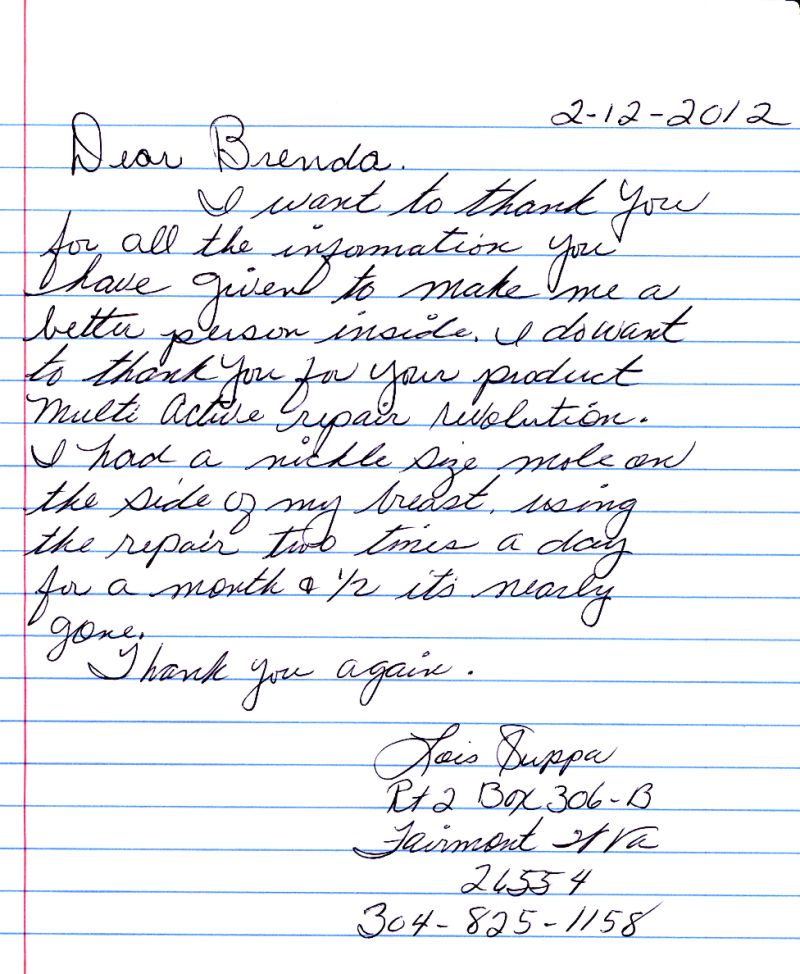 2-12-2012
Dear Brenda.
I want to thank you
for all the infomation you
have given to make me a
better person inside. I do want
to thank you for your product
Multi Active repair revolution.
I had a nickle size mole on
the side of my breast, using
the repair two times a day
for a month & 1/2 it's nearly
gone.
Thank you again.
Lois Suppa
Rt 2 Box 306-B
Fairmont W Va
26554
304-825-1158